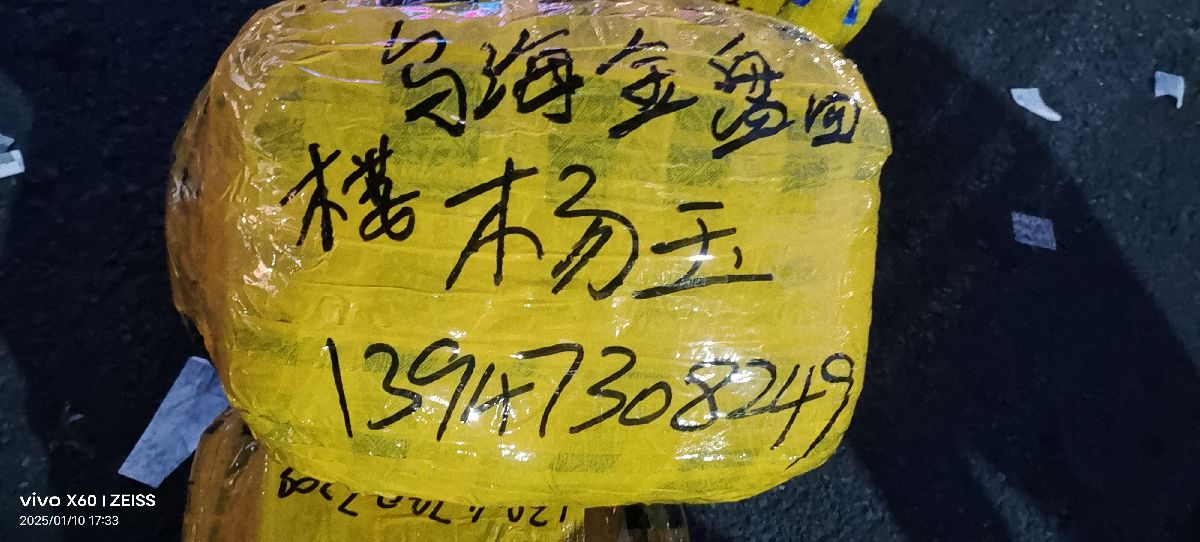 乌海金盘回
楼杨玉
13947308249
vivo X60 | ZEISS
2025/01/10 17:33